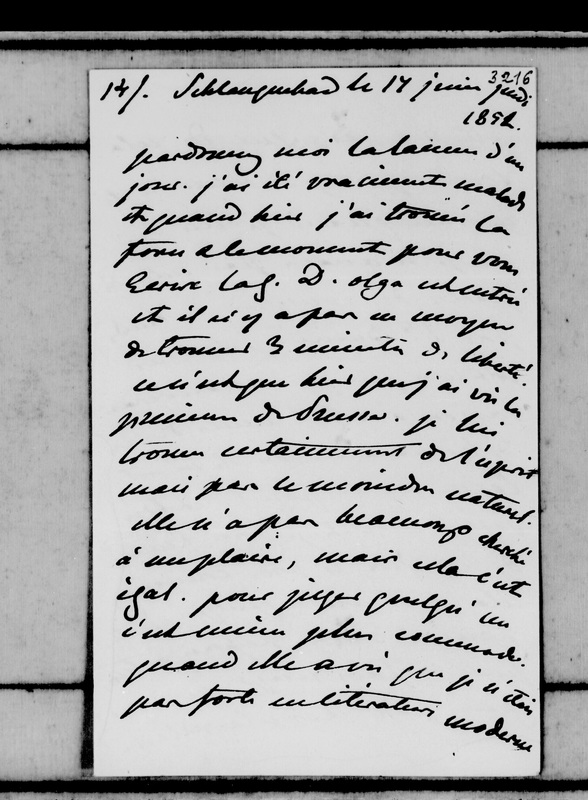 3216
14/. Schlangenbad le 17 juin jeudi
1852.
pardonnez moi la lacune d'un
jour. j'ai été vraiment malade
et quand hier j'ai trouvé la
force et le moment pour vous
Ecrire la G. D. olga est entrée
et il n'y a pas eu moyen
de trouver 3 minutes de liberté.
ce n'est que hier que j'ai vu la
princesse de Prusse. je lui
trouve certainement de l'esprit
mais pas le moindre naturel.
elle n'a pas beaucoup cherché
à me plaire, mais cela m'est
égal. pour juger quelqu'un
c'est même plus commode.
quand elle a vu que je n'étais
pas forte en literature moderne